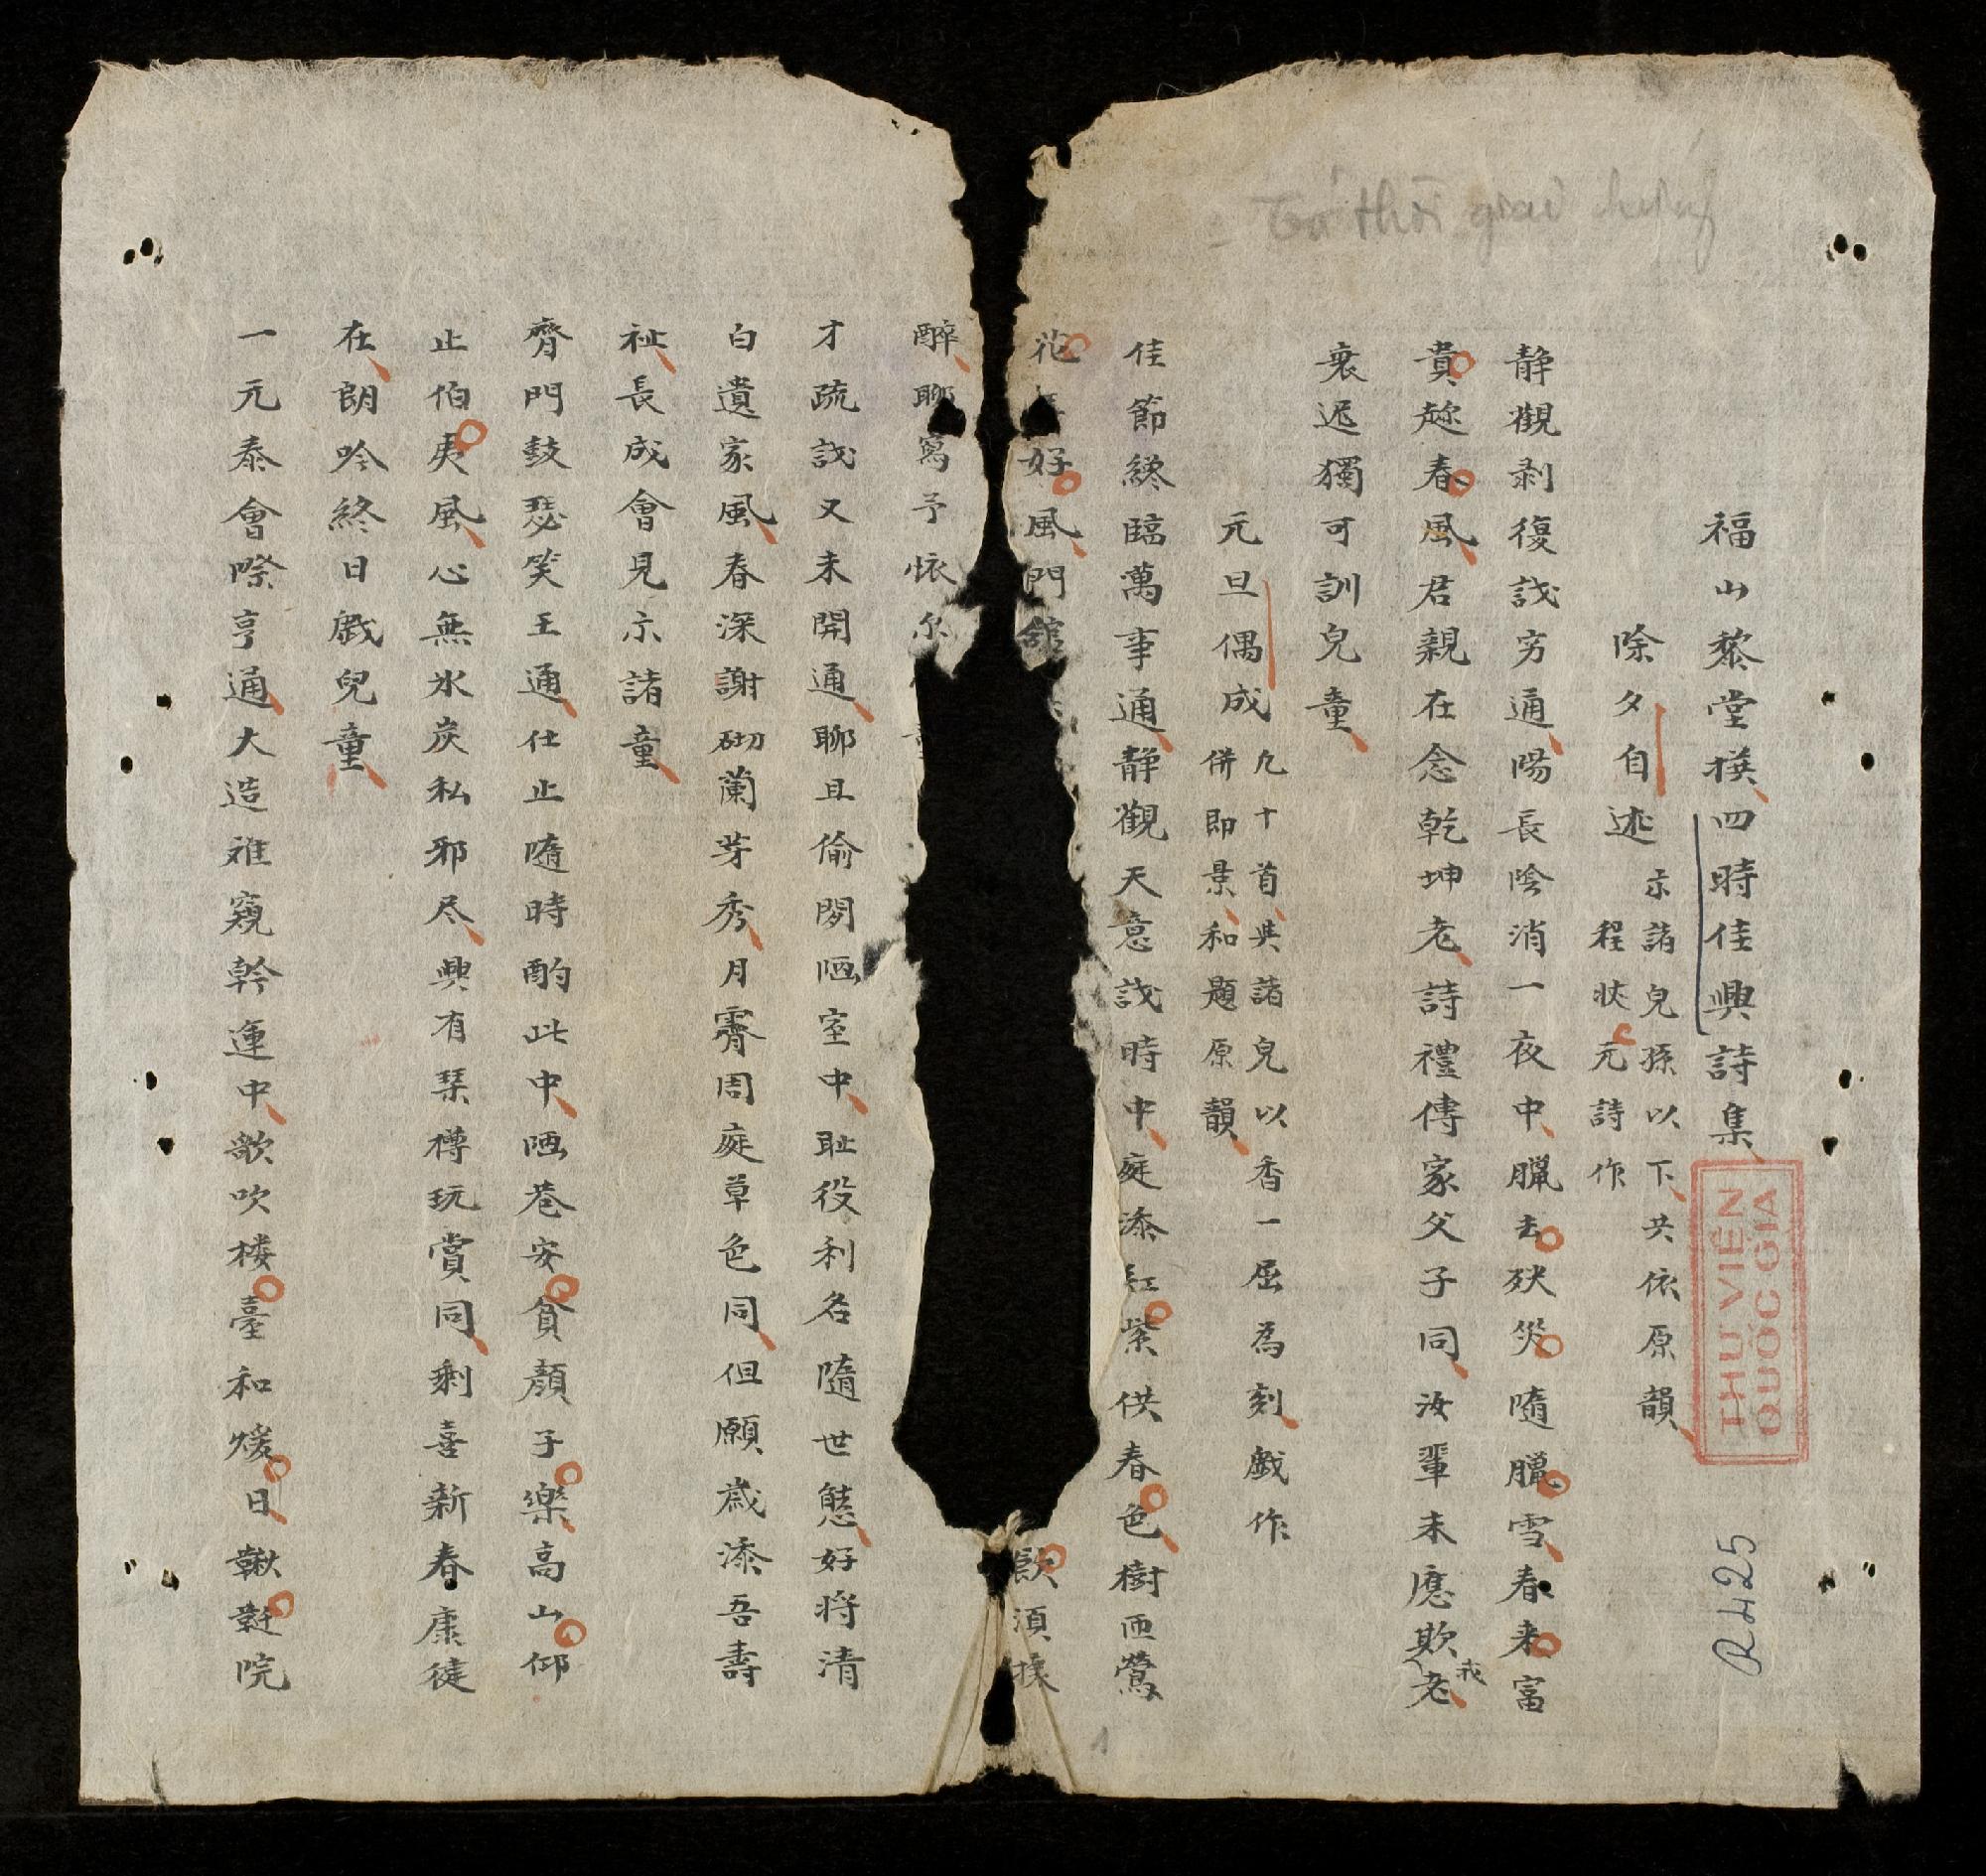 福山黎堂撰四時佳興詩集
除夕自述
示諸兒孫以下共依原韻
程狀元詩作
靜觀剥復識穷通陽長陰消一夜中臘去殃災隨臘雪春来富
貴趂春風君親在念乾坤老詩禮傳家父子同汝輩未應欺老
我
衰迟獨可訓兒童
元旦偶成
凡十首共諸兒以香一屈為刻戲作
併即景和題原韻
佳節緫臨萬事通靜觀天意識時中庭添紅紫供春色樹匝鶯
花 好風門館 歐須換
醉聊寫予懷尔
才疏識又未開通聊且偷閒陋室中耻役利名隨世態好将清
白遺家風春深謝砌蘭芽秀月霽周庭草色同但願歲添吾壽
祉長成會見示諸童
齊門鼓瑟笑王通仕止隨時酌此中陋巷安貧顏子樂高山仰
止伯夷風心無氷炭私邪尽興有琹樽玩賞同剩喜新春康健
在朗吟終日戲兒童
一元泰會際亨通大造雅窺幹運中歌吹楼臺和煖日鞦韆院
THƯ VIỆN
QUỐC GIA
R.425
1